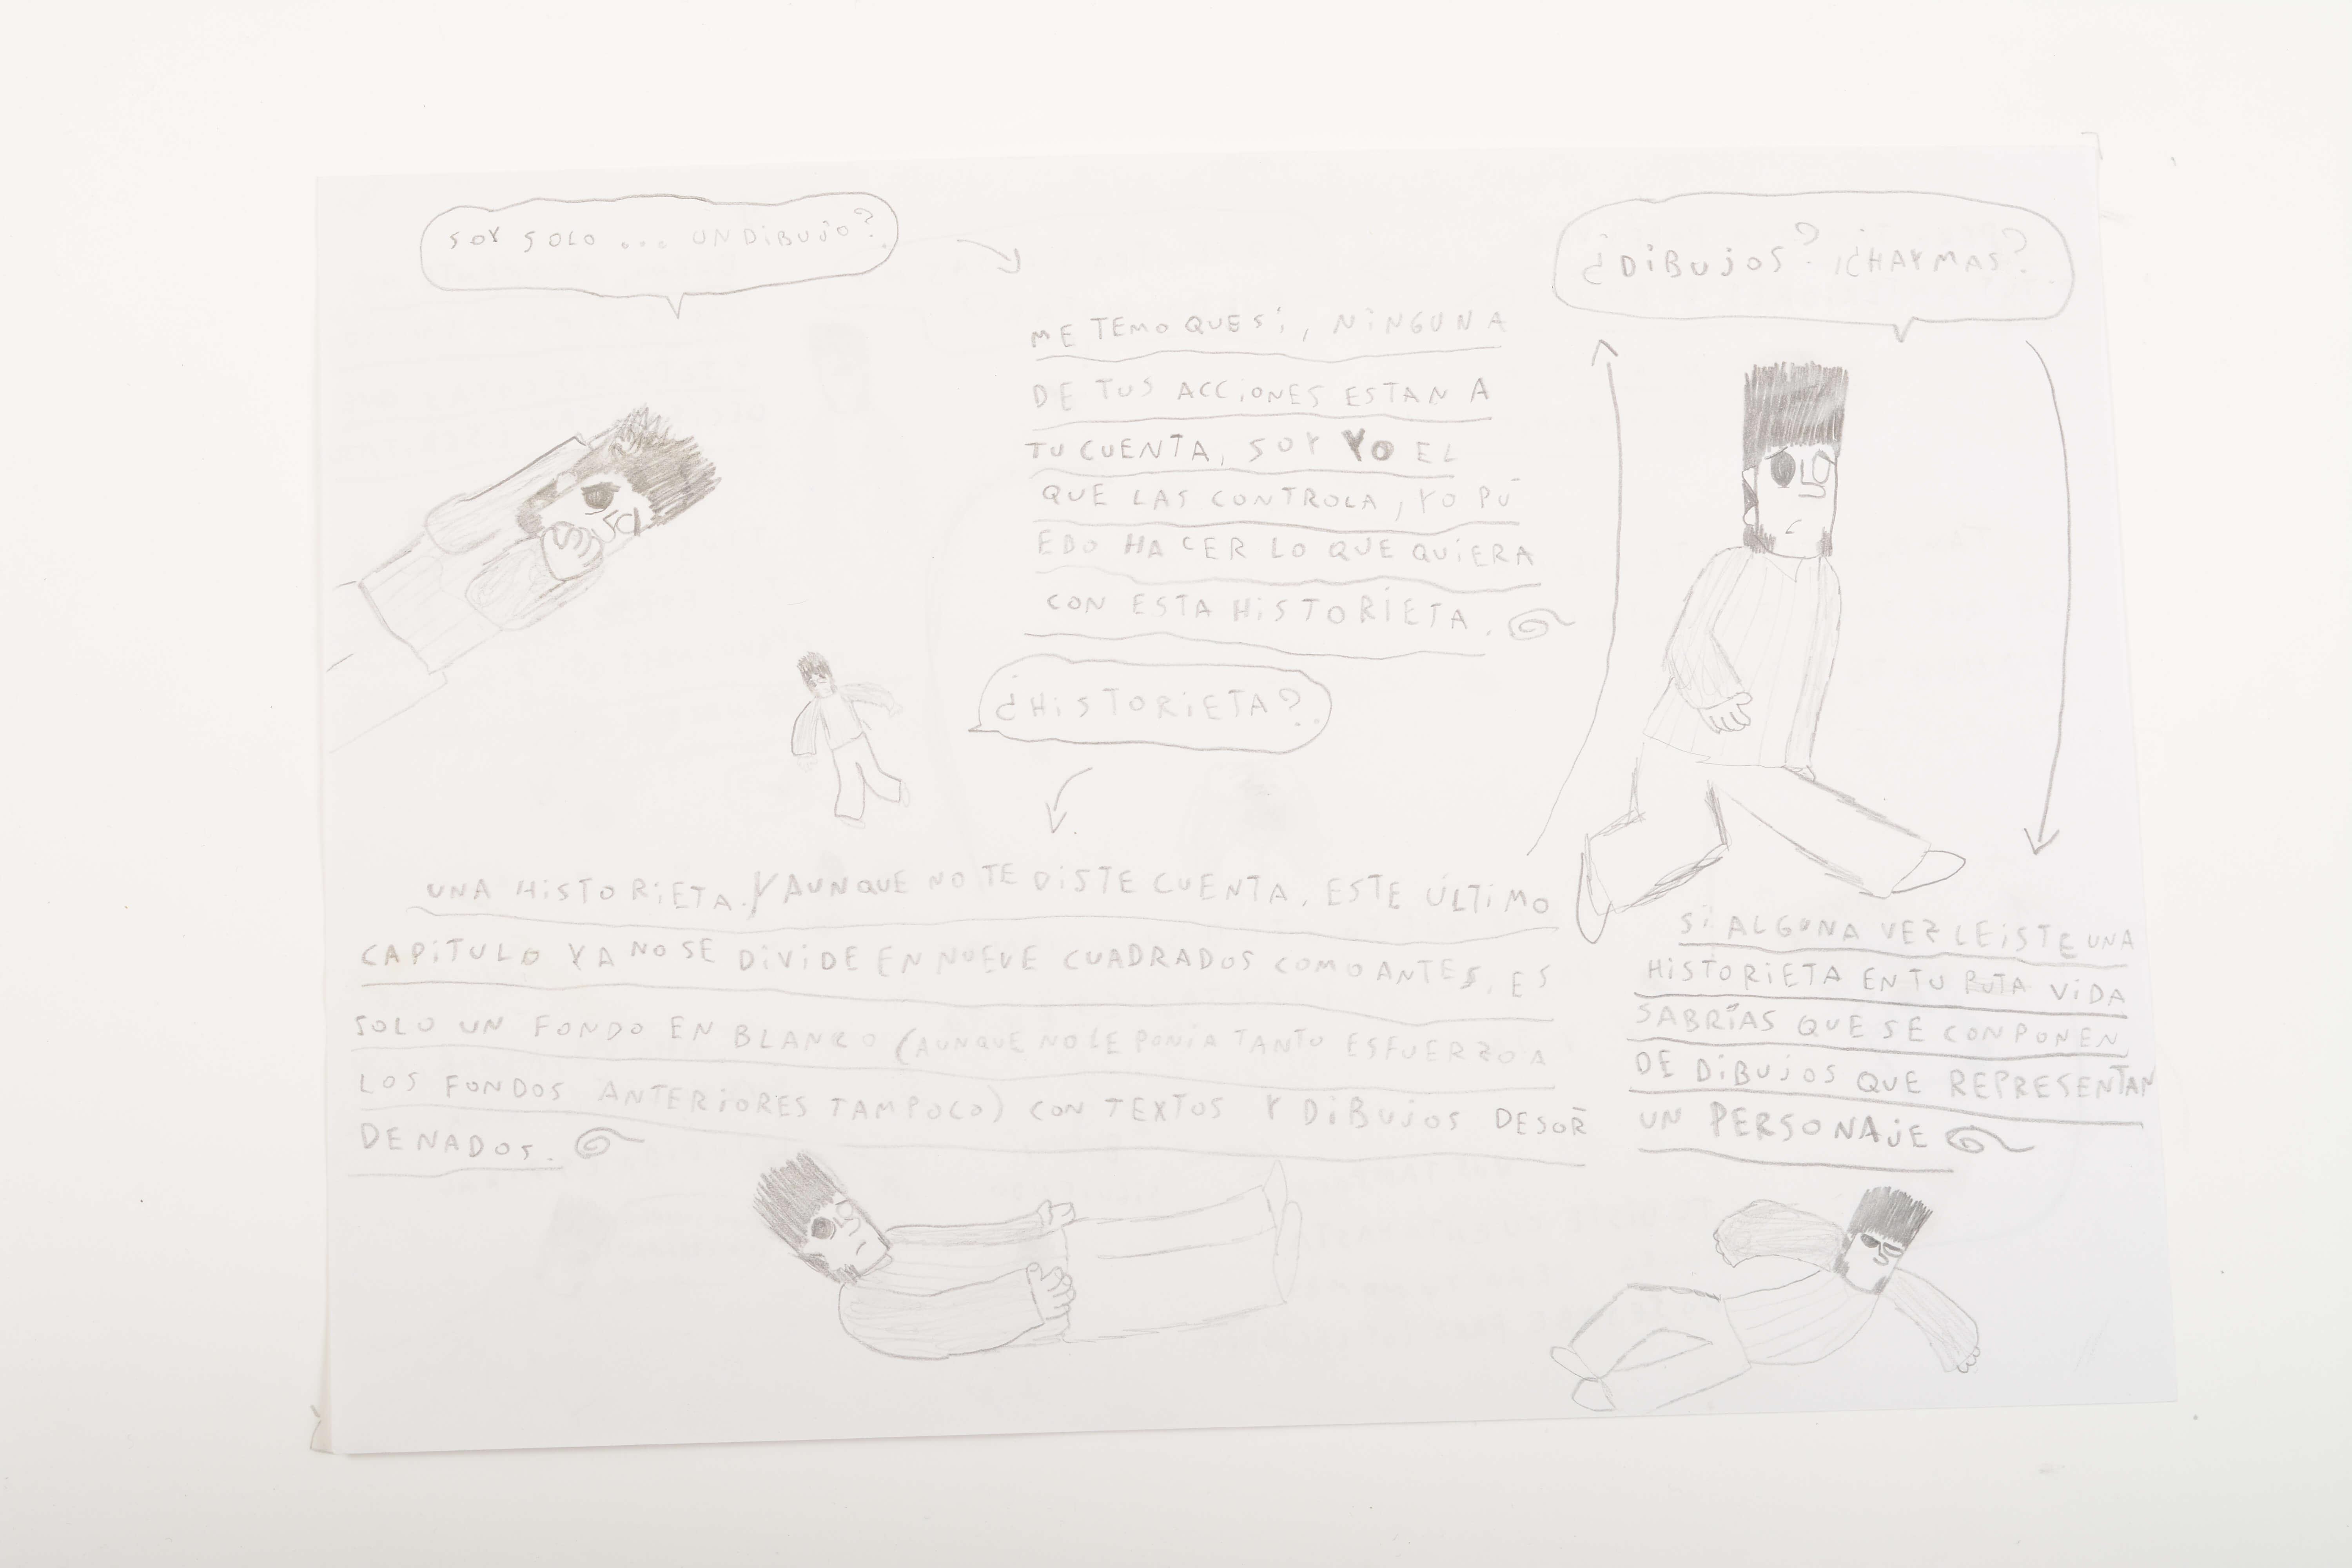 SOY SOLO ... UN DIBUJO?
ME TEMO QUE SI, NINGUNA
DE TUS ACCIONES ESTAN A
TU CUENTA, SOY YO EL
QUE LAS CONTROLA, YO PU-
EDO HACER LO QUE QUIERA
CON ESTA HISTORIETA.
¿HISTORIETA?
UNA HISTORIETA. Y AUNQUE NO TE DISTE CUENTA, ESTE ÚLTIMO
CAPITULO YA NO SE DIVIDE EN NUEVE CUADRADOS COMO ANTES, ES
SOLO UN FONDO EN BLANCO (AUNQUE NO LE PONÍA TANTO ESFUERZO A
LOS FONDOS ANTERIORES TAMPOCO) CON TEXTOS Y DIBUJOS DESOR-
DENADOS.
¿DIBUJOS? ¡¿HAY MAS?
SI ALGUNA VEZ LEISTE UNA
HISTORIETA EN TU PUTA VIDA
SABRÍAS QUE SE CONPONEN
DE DIBUJOS QUE REPRESENTAN
UN PERSONAJE